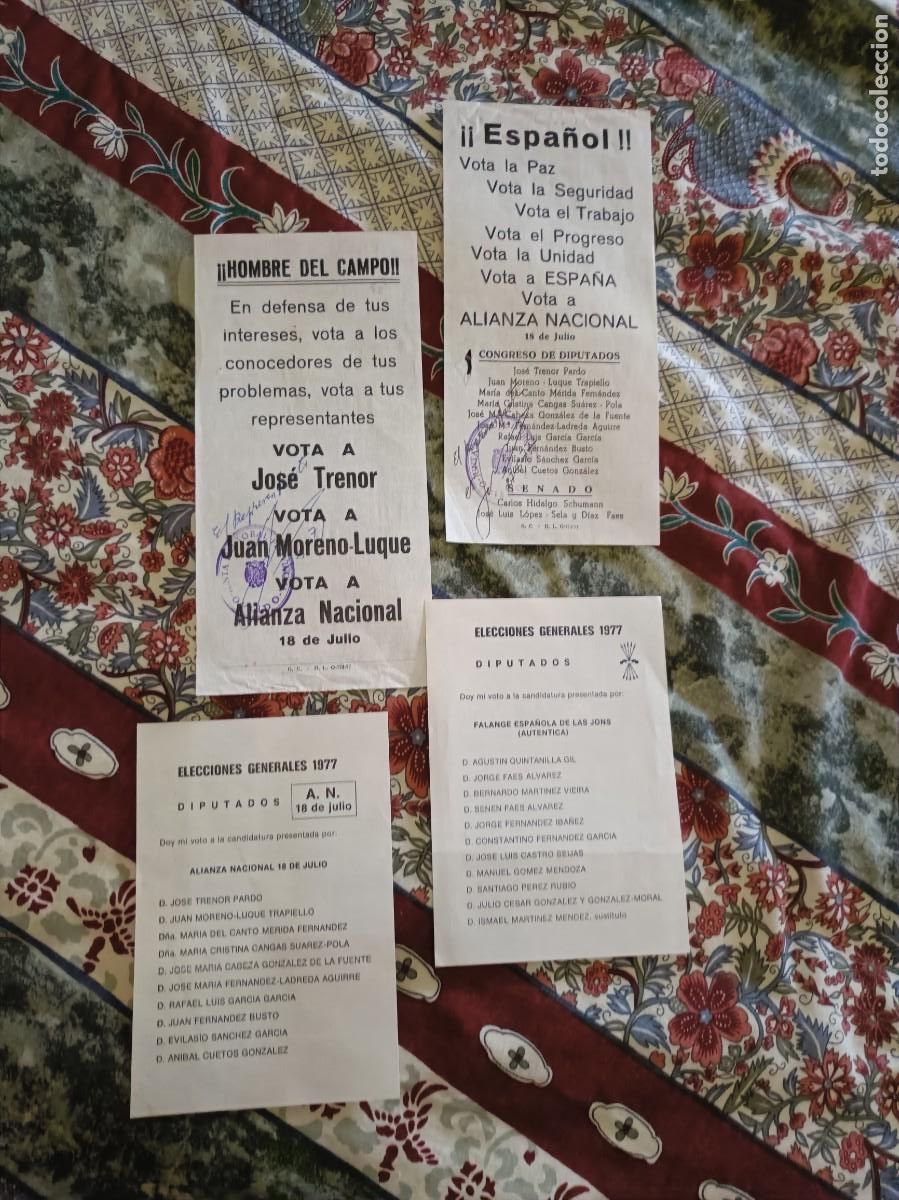 todocoleccion
¡¡HOMBRE DEL CAMPO!!
En defensa de tus
intereses, vota a los
conocedores de tus
problemas, vota a tus
representantes
VOTA A
José Trenor
VOTA A
Juan Moreno-Luque
VOTA A
Alianza Nacional
18 de Julio
¡¡ Español !!
Vota la Paz
Vota la Seguridad
Vota el Trabajo
Vota el Progreso
Vota la Unidad
Vota a ESPAÑA
Vota a
ALIANZA NACIONAL
18 de Julio
CONGRESO DE DIPUTADOS
José Trenor Pardo
Juan Moreno - Luque Trapiello
María del Canto Mérida Fernández
María Cristina Cangas Suárez - Pola
José M.ª Cabeza González de la Fuente
José M.ª Fernández-Ladreda Aguirre
Rafael Luis García García
Juan Fernández Busto
Evilasio Sánchez García
Aníbal Cuetos González
SENADO
Carlos Hidalgo Schumann
José Luis López - Sela y Díaz Faes
ELECCIONES GENERALES 1977
DIPUTADOS
A. N.
18 de julio
Doy mi voto a la candidatura presentada por:
ALIANZA NACIONAL 18 DE JULIO
D. JOSE TRENOR PARDO
D. JUAN MORENO-LUQUE TRAPIELLO
Dña. MARIA DEL CANTO MERIDA FERNANDEZ
Dña. MARIA CRISTINA CANGAS SUAREZ-POLA
D. JOSE MARIA CABEZA GONZALEZ DE LA FUENTE
D. JOSE MARIA FERNANDEZ-LADREDA AGUIRRE
D. RAFAEL LUIS GARCIA GARCIA
D. JUAN FERNANDEZ BUSTO
D. EVILASIO SANCHEZ GARCIA
D. ANIBAL CUETOS GONZALEZ
ELECCIONES GENERALES 1977
DIPUTADOS
Doy mi voto a la candidatura presentada por:
FALANGE ESPAÑOLA DE LAS JONS
(AUTENTICA)
D. AGUSTIN QUINTANILLA GIL
D. JORGE FAES ALVAREZ
D. BERNARDO MARTINEZ VIEIRA
D. SENEN FAES ALVAREZ
D. JORGE FERNANDEZ IBAÑEZ
D. CONSTANTINO FERNANDEZ GARCIA
D. JOSE LUIS CASTRO SEIJAS
D. MANUEL GOMEZ MENDOZA
D. SANTIAGO PEREZ RUBIO
D. JULIO CESAR GONZALEZ Y GONZALEZ-MORAL
D. ISMAEL MARTINEZ MENDEZ, sustituto